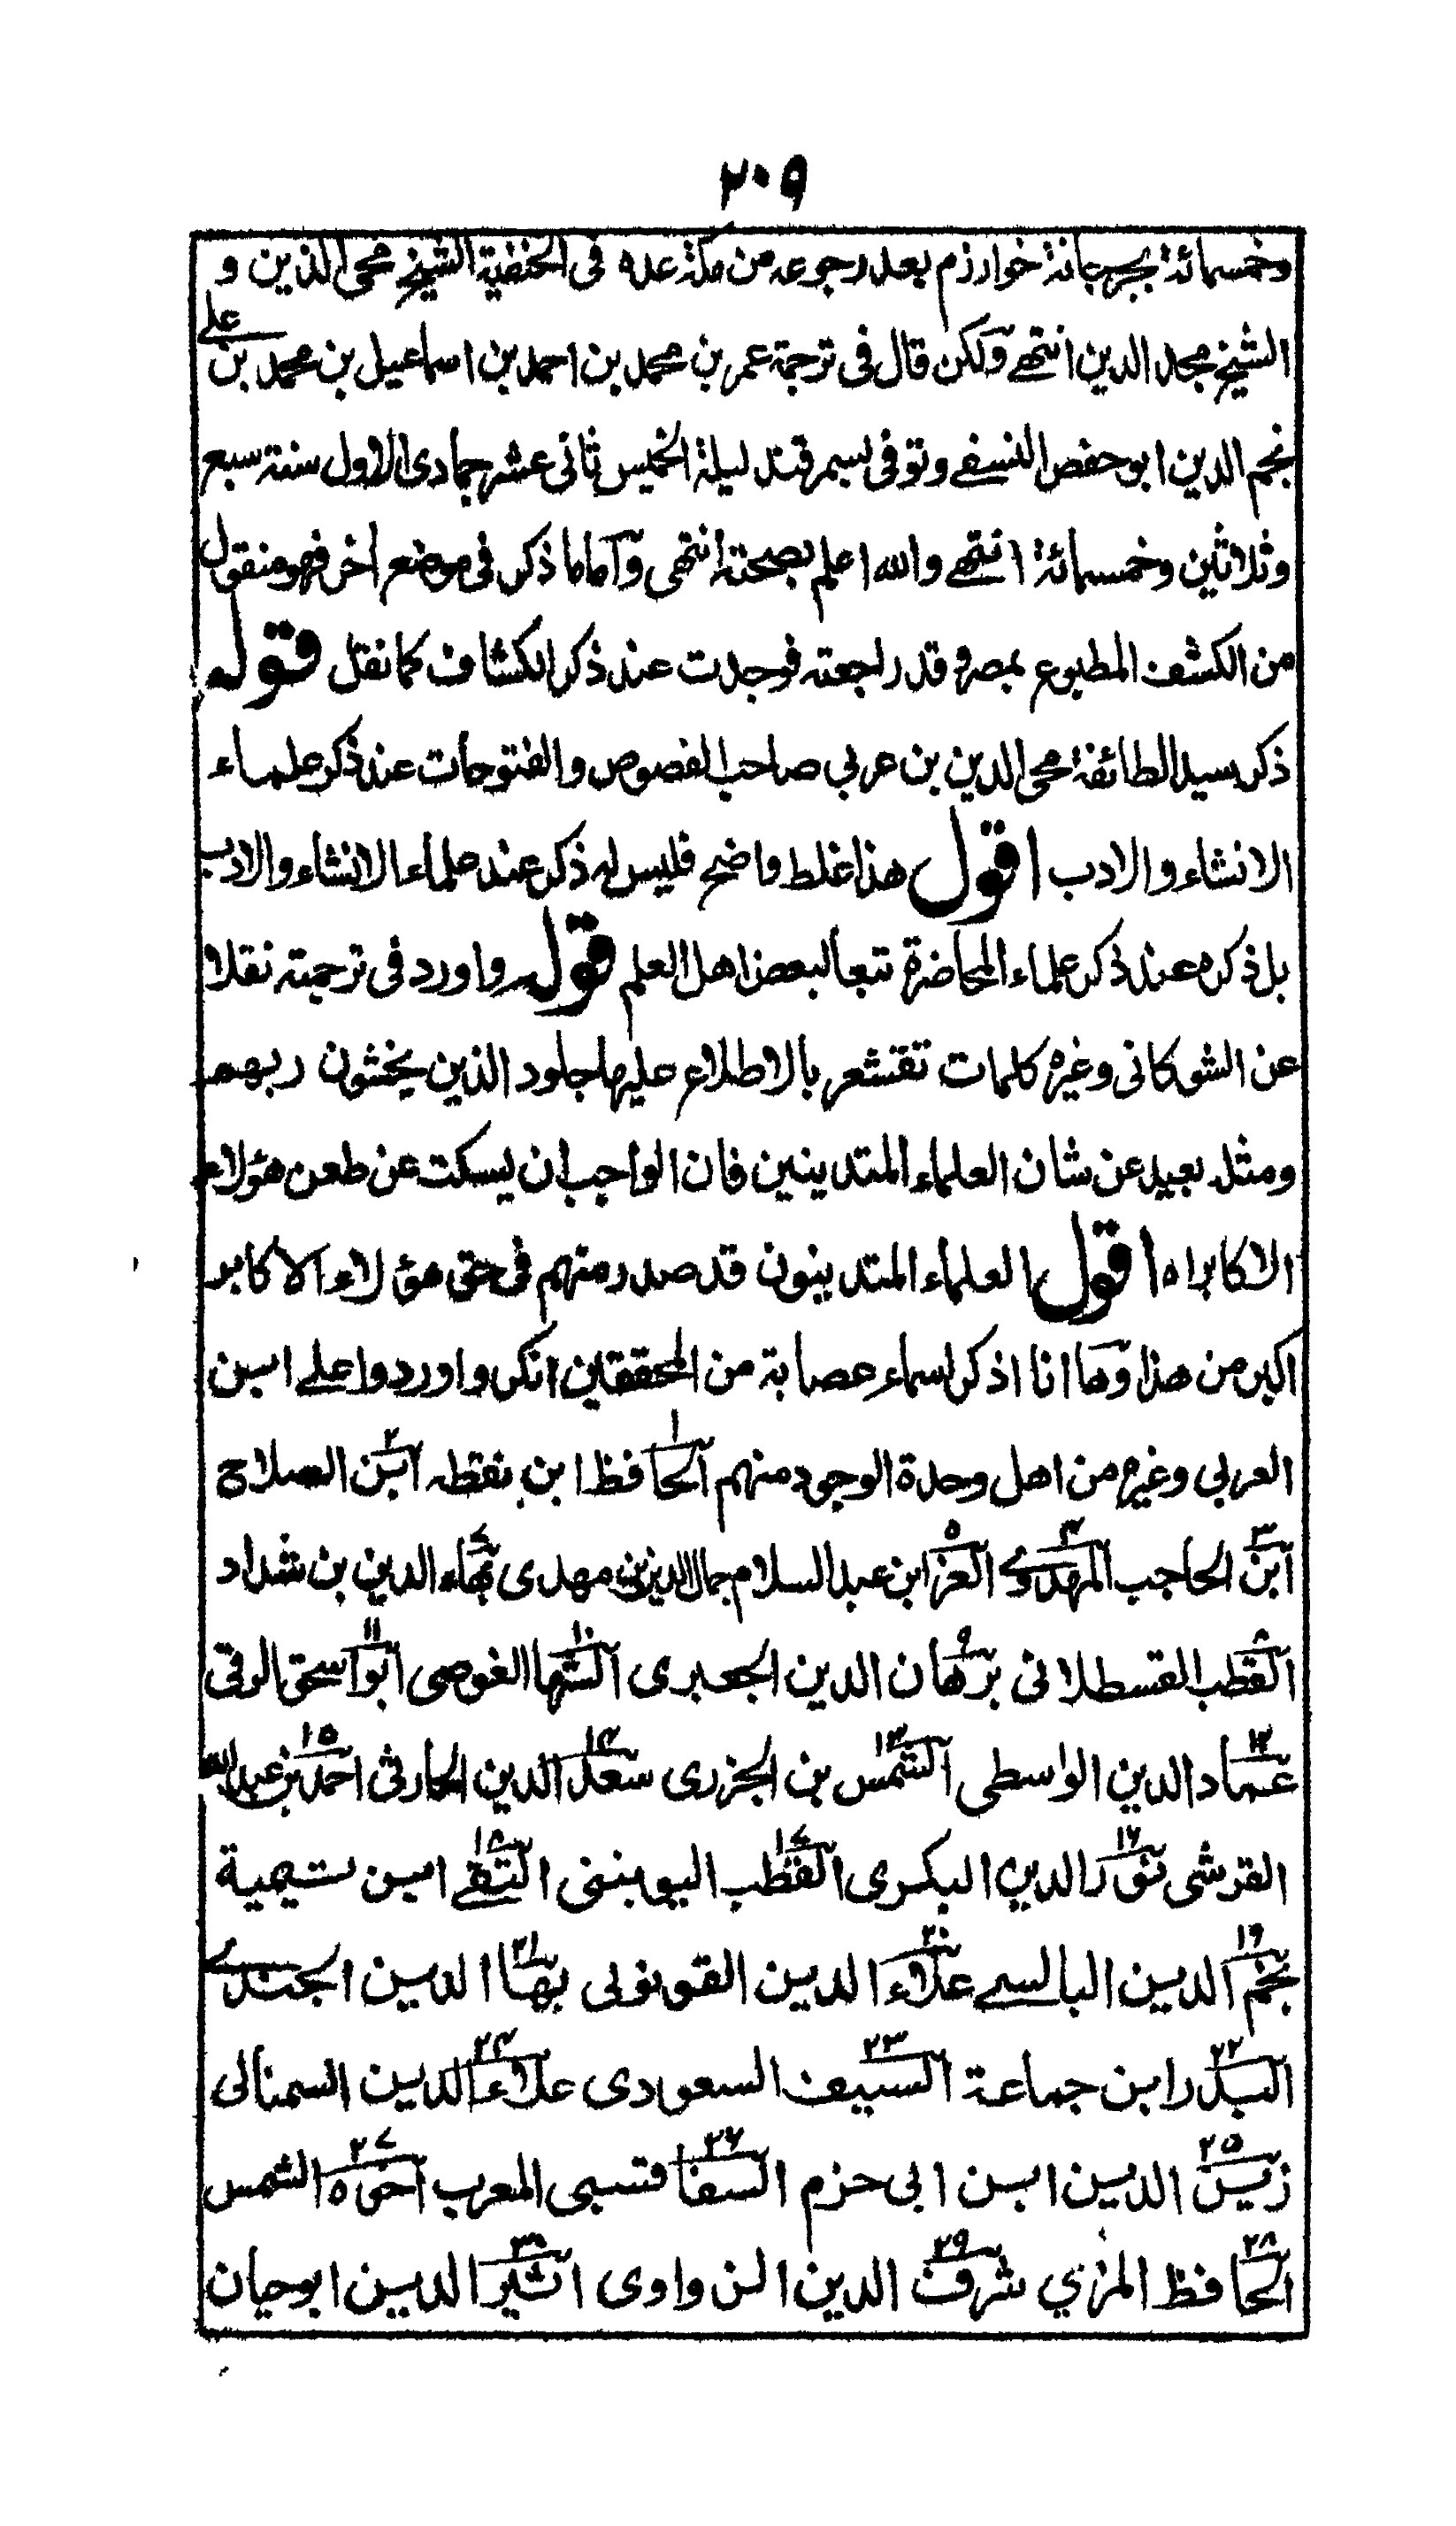 ٢٠٩
وخمسمائة بجرجانة خوارزم بعد رجوعه من مكة عده فى الحنفية الشيخ محى الدين و
الشيخ مجد الدين انتهے ولكن قال فى ترجمة عمر بن محمد بن احمد بن اسماعيل بن محمد بن علے
نجم الدين ابو حفص النسفے وتوفى بسمرقند ليلة الخميس ثانى عشر جمادى الاول سنة سبع
وثلاثين وخمسمائة انتهے والله اعلم بصحته انتهى وآماما ذكر فى موضع اخر فهو منقول
من الكشف المطبوع بمصر وقد راجعته فوجدت عند ذكر الكشاف كما نقل قوله
ذكر سيد الطائفة محى الدين بن عربي صاحب الفصوص والفتوحات عند ذكر علماء
الانشاء والادب اقول هذا غلط واضح فليس له ذكر عند علماء الانشاء والادب
بل ذكره عند ذكر علماء المحاضرة تبعا لبعض اهل العلم قوله واورد فى ترجمته نقلا
عن الشوكانى وغيره كلمات تقشعر بالاطلاع عليها جلود الذين يخشون ربهم
ومثله بعيد عن شان العلماء المتدينين فان الواجب ان يسكت عن طعن هؤلاء
الاكابر اه اقول العلماء المتدينون قد صدر منهم فى حق هؤلاء الاكابر
اكبر من هذا وها انا اذكر اسماء عصابة من المحققين انكروا وردوا علے ابن
العربي وغيره من اهل وحدة الوجود منهم ١ الحافظ ابن نقطه ٢ ابن الصلاح
٣ ابن الحاجب ٤ المهدوے ٥ العز ابن عبد السلام جمال الدين بن مهدى ٧ بهاء الدين بن شداد
٨ القطب القسطلانى ٩ برهان الدين الجعبرى ١٠ الشها الغوصى ١١ ابو اسحق الرقى
١٢ عماد الدين الواسطى ١٣ الشمس بن الجزرى ١٤ سعد الدين الحارثى ١٥ احمد بن عبد الله
القرشى ١٦ نور الدين البكرى ١٧ القطب اليوبننى ١٨ التقے ابن تيمية
١٩ نجم الدين البالسے ٢٠ علاء الدين القونولى ٢١ بها الدين الجندے
٢٢ البدر ابن جماعة ٢٣ السيف السعودى ٢٤ علاء الدين السمنالى
٢٥ زين الدين ابن ابى حزم ٢٦ السفا قسبى المعرب ٢٧ اخوه الشمس
٢٨ الحافظ المزي ٢٩ شرف الدين الزواوى ٣٠ اثير الدين ابو حيان